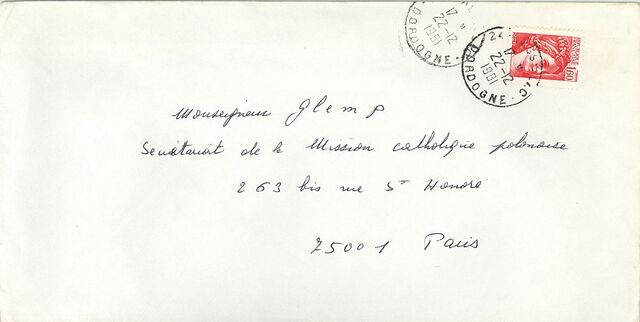 17 H
22-12
1981
DORDOGNE
24
17 H
22-12
1981
DORDOGNE
1,60
Monseigneur Glemp
Secrétariat de la Mission catholique polonaise
263 bis rue St Honoré
75001 Paris